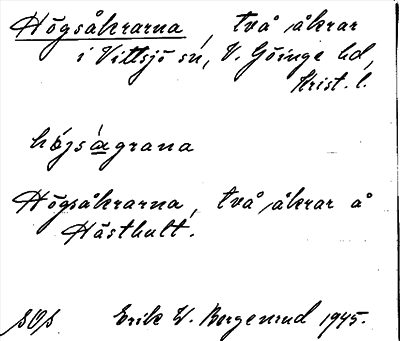 Högsåkrarna, två åkrar
i Vittsjö sn, V. Göinge hd,
Krist. l.
hö́jsàgrana
Högsåkrarna, två åkrar å
Hästhult.
Erik W. Bergenrud 1945.